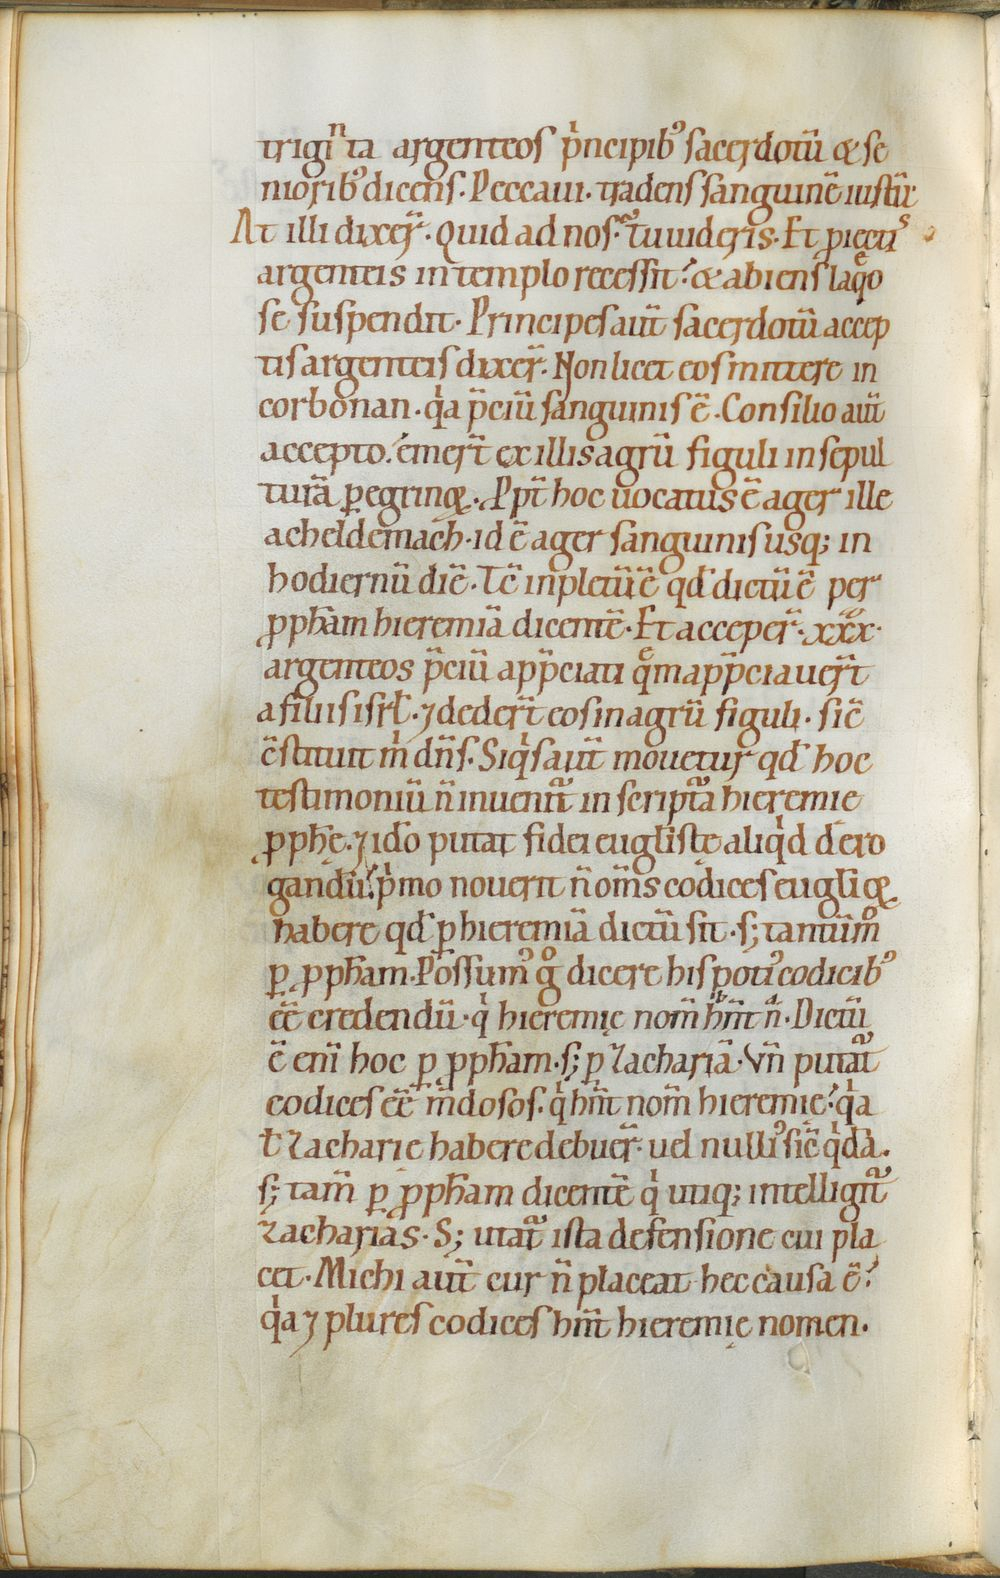 trigiⁿta argenteos p͛ncipib⁹ sacerdotū & se
niorib⁹ dicens. Peccaui. tradens sanguinē iustū.
At illi dixer̄. Quid ad nos. tu uideris. Et ꝓiecti͛s
argenteis in templo recessit. & abiens laq͛o
se suspendit. Principes aūt sacerdotū accep
tis argenteis dixer̄. Non licet eos mittere in
corbonan. q͛a p̄ciū sanguinis ē. Consilio aūt
accepto. emer̄t ex illis agrū figuli in sepul
turā ꝑegrinoꝝ. Ꝓpt̄ hoc uocatus ē ager ille
acheldemach. id ē ager sanguinis usq; in
hodiernū diē. Tc̄ inpletū ē qd̄ dictū ē per
ꝓpħam hieremiā dicentē. Et acceper̄. xxx.
argenteos p̄ciū app̄ciati quem app̄ciauer̄t
a filiis isrł. ⁊ deder̄t eos in agrū figuli. sic̄
c̄stituit m͛ dn̄s. Siq͛s aūt mouetur qd̄ hoc
testimoniū n̄ inuenit᷑ in script᷑a hieremie
ꝓpħę. ⁊ ido putat fidei eugl̄istę aliq͛d dero
gandū. p͛mo nouerit n̄ om̄s codices eugl̄ioꝝ
habere qd̄ ꝑ hieremiā dictū sit. s; tantūm̊
ꝑ ꝓpħam. Possum⁹ g̊ dicere his poti⁹ codicib⁹
eē̄ credendū. q͛ hieremię nom̄ hn̄t n̄. Dictū
ē enī hoc ꝑ ꝓpħam. s; ꝑ zachariā. Vn̄ putat᷑
codices eē̄ m̄dosos. q͛ hn̄t nom̄ hieremię. q͛a
ł zacharie habere debuer̄. uel nulli⁹ sic̄ q͛dā.
s; tam̄ ꝑ ꝓpħam dicentē q͛ utiq; intelligit᷑
zacharias. S; utat᷑ ista defensione cui pla
cet. Michi aūt cur n̄ placeat hec causa ē.
q͛a ⁊ plures codices hn̄t hieremię nomen.